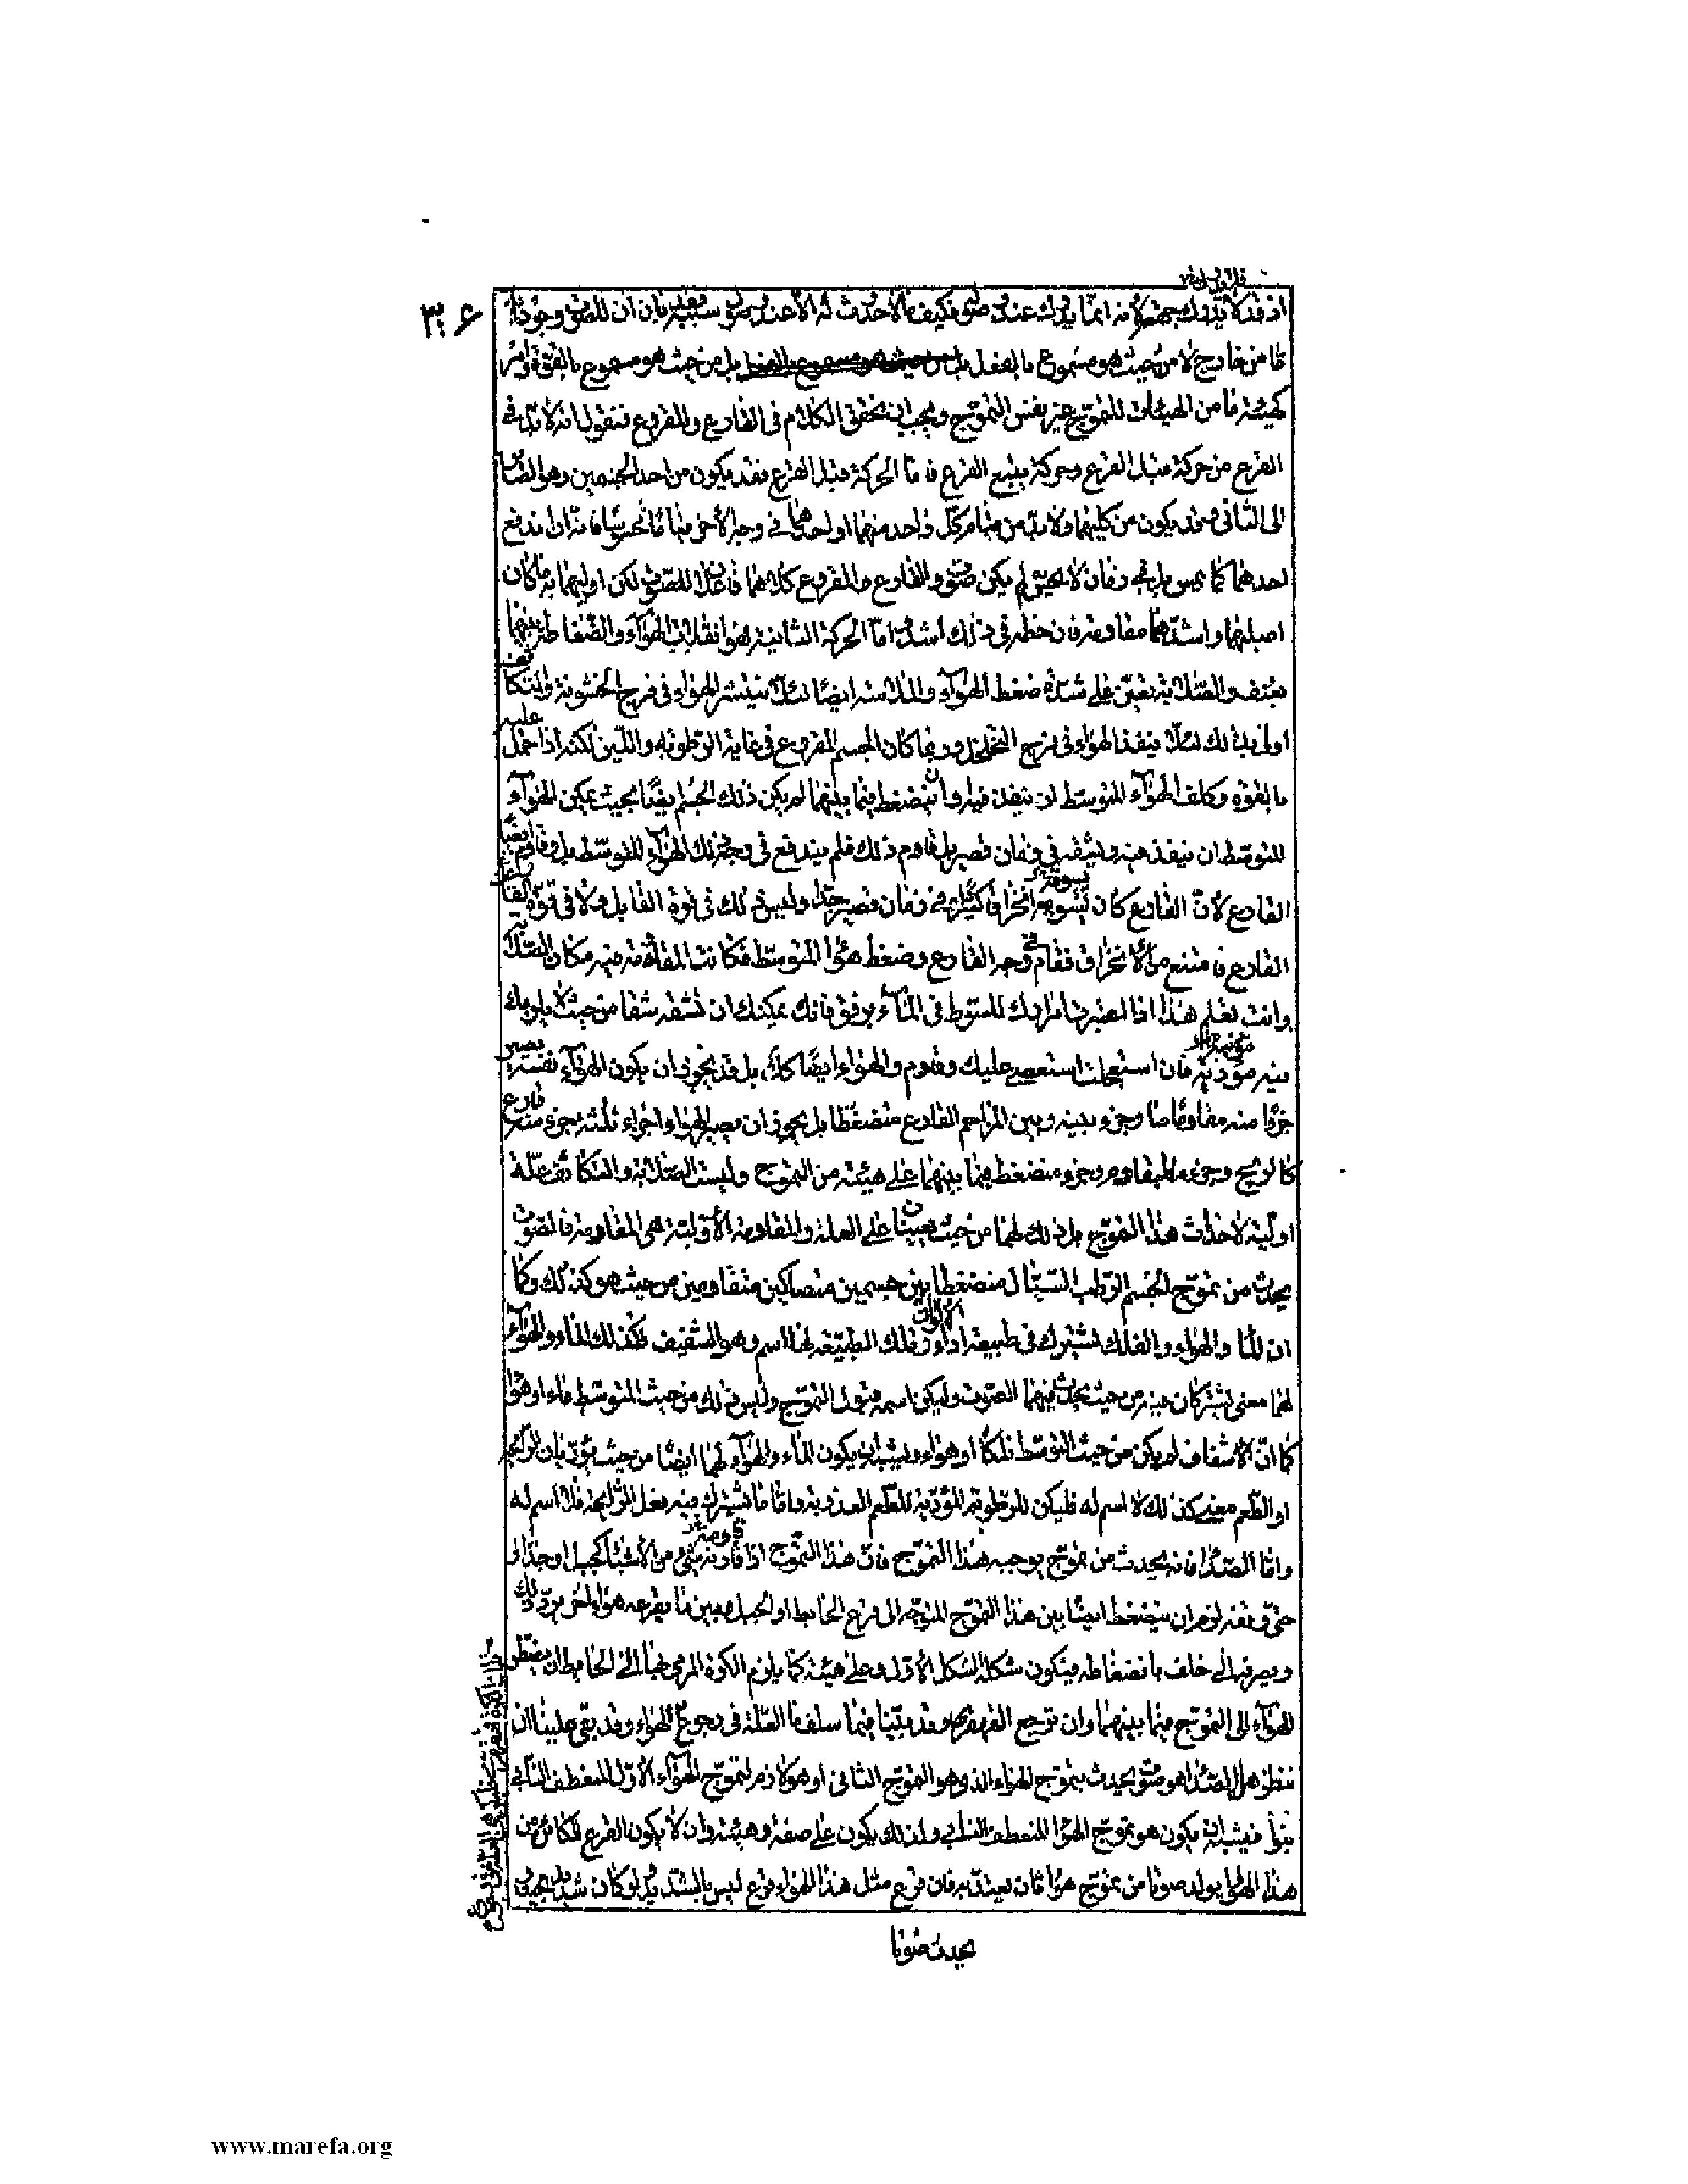 ٣٠٦
كهيئة ما من الهيئات للتموج غير نفس التموج ويجب ان يحقق الكلام فى القارع والمقروع فنقول انه لا بد فى
القرع من حركة قبل القرع وحركة يتبع القرع فاما الحركة قبل القرع فقد يكون من احد الجسمين وهو الصاير
الى الثانى وقد يكون من كليهما ولا بد من قيام كل واحد منهما او احدهما فى وجه الاخر قياما محسوسا فانه ان اندفع
احدهما كما يمس بل فى زمان لا يحس لم يكن صوت والقارع والمقروع كلاهما فاعلان للصوت لكن اوليهما به ما كان
اصلبهما واشدهما مقاومة فان حظه فى ذلك اشد واما الحركة الثانية فهو انفلات الهواء وانضغاطه بينهما
بعنف والصلابة تعين على شدة ضغط الهواء والملاسة ايضا لئلا ينتشر الهواء فى فرج الخشونة والتكاثف
اولى بذلك لئلا ينفذ الهواء فى فرج التخلخل وربما كان الجسم المقروع فى غاية الرطوبة واللين لكنه اذا حمل عليه
بالقوة وكلف الهواء المتوسط ان ينفذ فيه وان ينضغط فيما بينهما لم يكن ذلك الجسم ايضا بحيث يمكن الهواء
المتوسط ان ينفذ فيه ويشقه فى زمان قصير بل قاوم ذلك فلم يندفع فى وجه ذلك الهواء المتوسط بل وقاوم ايضا
القارع لان القارع كان يسومه انخراقا كثيرا فى زمان قصير جدا وليس ذلك فى قوة القابل ولا فى قوة الفاعل
القارع فامتنع من الانخراق فقام فى وجه القارع وضغط الهواء المتوسط فكانت المقاومة فيه مكان الصلابة
وانت تعلم هذا اذا اعتبرت امرارك السوط فى الماء برفق فانك يمكنك ان تشقه شقا من حيث لا يلزمك
فيه مؤنة فان استعجلت استعصى عليك وقاوم والهواء ايضا كذلك بل قد يجوز ان يكون الهواء نفسه يصير
جزءا منه مقاوما وجزء بينه وبين المزاحم القارع منضغطا بل يجوز ان يصير الهواء اجزاء ثلثة جزء منه قارع
كالريح وجزء مقاوم وجزء منضغط فيما بينهما على هيئة من التموج وليست الصلابة والتكاثف علة
اولية لاحداث هذا التموج بل ذلك لهما من حيث يعينان على العلة والمقاومة الاولية هى المقاومة فالصوت
يحدث من تموج الجسم الرطب السيال منضغطا بين جسمين متصاكين متقاومين من حيث هو كذلك وكما
ان الماء والهواء والفلك تشترك فى طبيعة اداء الالوان وتلك الطبيعة لها اسم وهو الشفيف فكذلك الماء والهواء
لهما معنى يشتركان فيه من حيث يحدث فيهما الصوت وليكن اسمه قبول التموج وليس ذلك من حيث المتوسط ماء او هواء
كما ان الاشفاف لم يكن من حيث المتوسط فلكا او هواء ويشبه ان يكون الماء والهواء لهما ايضا من حيث يؤديان الرائحة
او الطعم معنى كذلك لا اسم له فليكن للرطوبة المؤدية للطعم العذوبة واما ما يشترك فيه نقل الرائحة فلا اسم له
واما الصدا فانه يحدث من تموج يوجبه هذا التموج فان هذا التموج اذا قاومه شىء من الاشياء كجبل او جدار
حتى وقفه لزم ان ينضغط ايضا بين هذا التموج المتوجه الى قرع الحايط او الجبل وبين ما يقرعه هواء اخر يرد ذلك
ويصرفه الى خلف بانضغاطه فيكون شكله الشكل الاول وعلى هيئته كما يلزم الكرة المرمى بها الى الحايط ان يضطر
الهواء الى التموج فيما بينهما وان ترجع القهقرى وقد بينا فيما سلف ما العلة فى رجوع الهواء وقد بقى علينا ان
ننظر هل الصدا هو صوت يحدث بتموج الهواء الذى هو التموج الثانى او هو لازم لتموج الهواء الاول المنعطف النابى
نبوا فيشبه ان يكون هو تموج الهواء المنعطف النابى ولذلك يكون على صفته وهيئته وان لا يكون القرع الكائن من
هذا الهواء يولد صوتا من تموج هواء ثان يعتد به فان قرع مثل هذا الهواء قرع ليس بالشديد ولو كان شديدا بحيث
يحدث صوتا
www.marefa.org